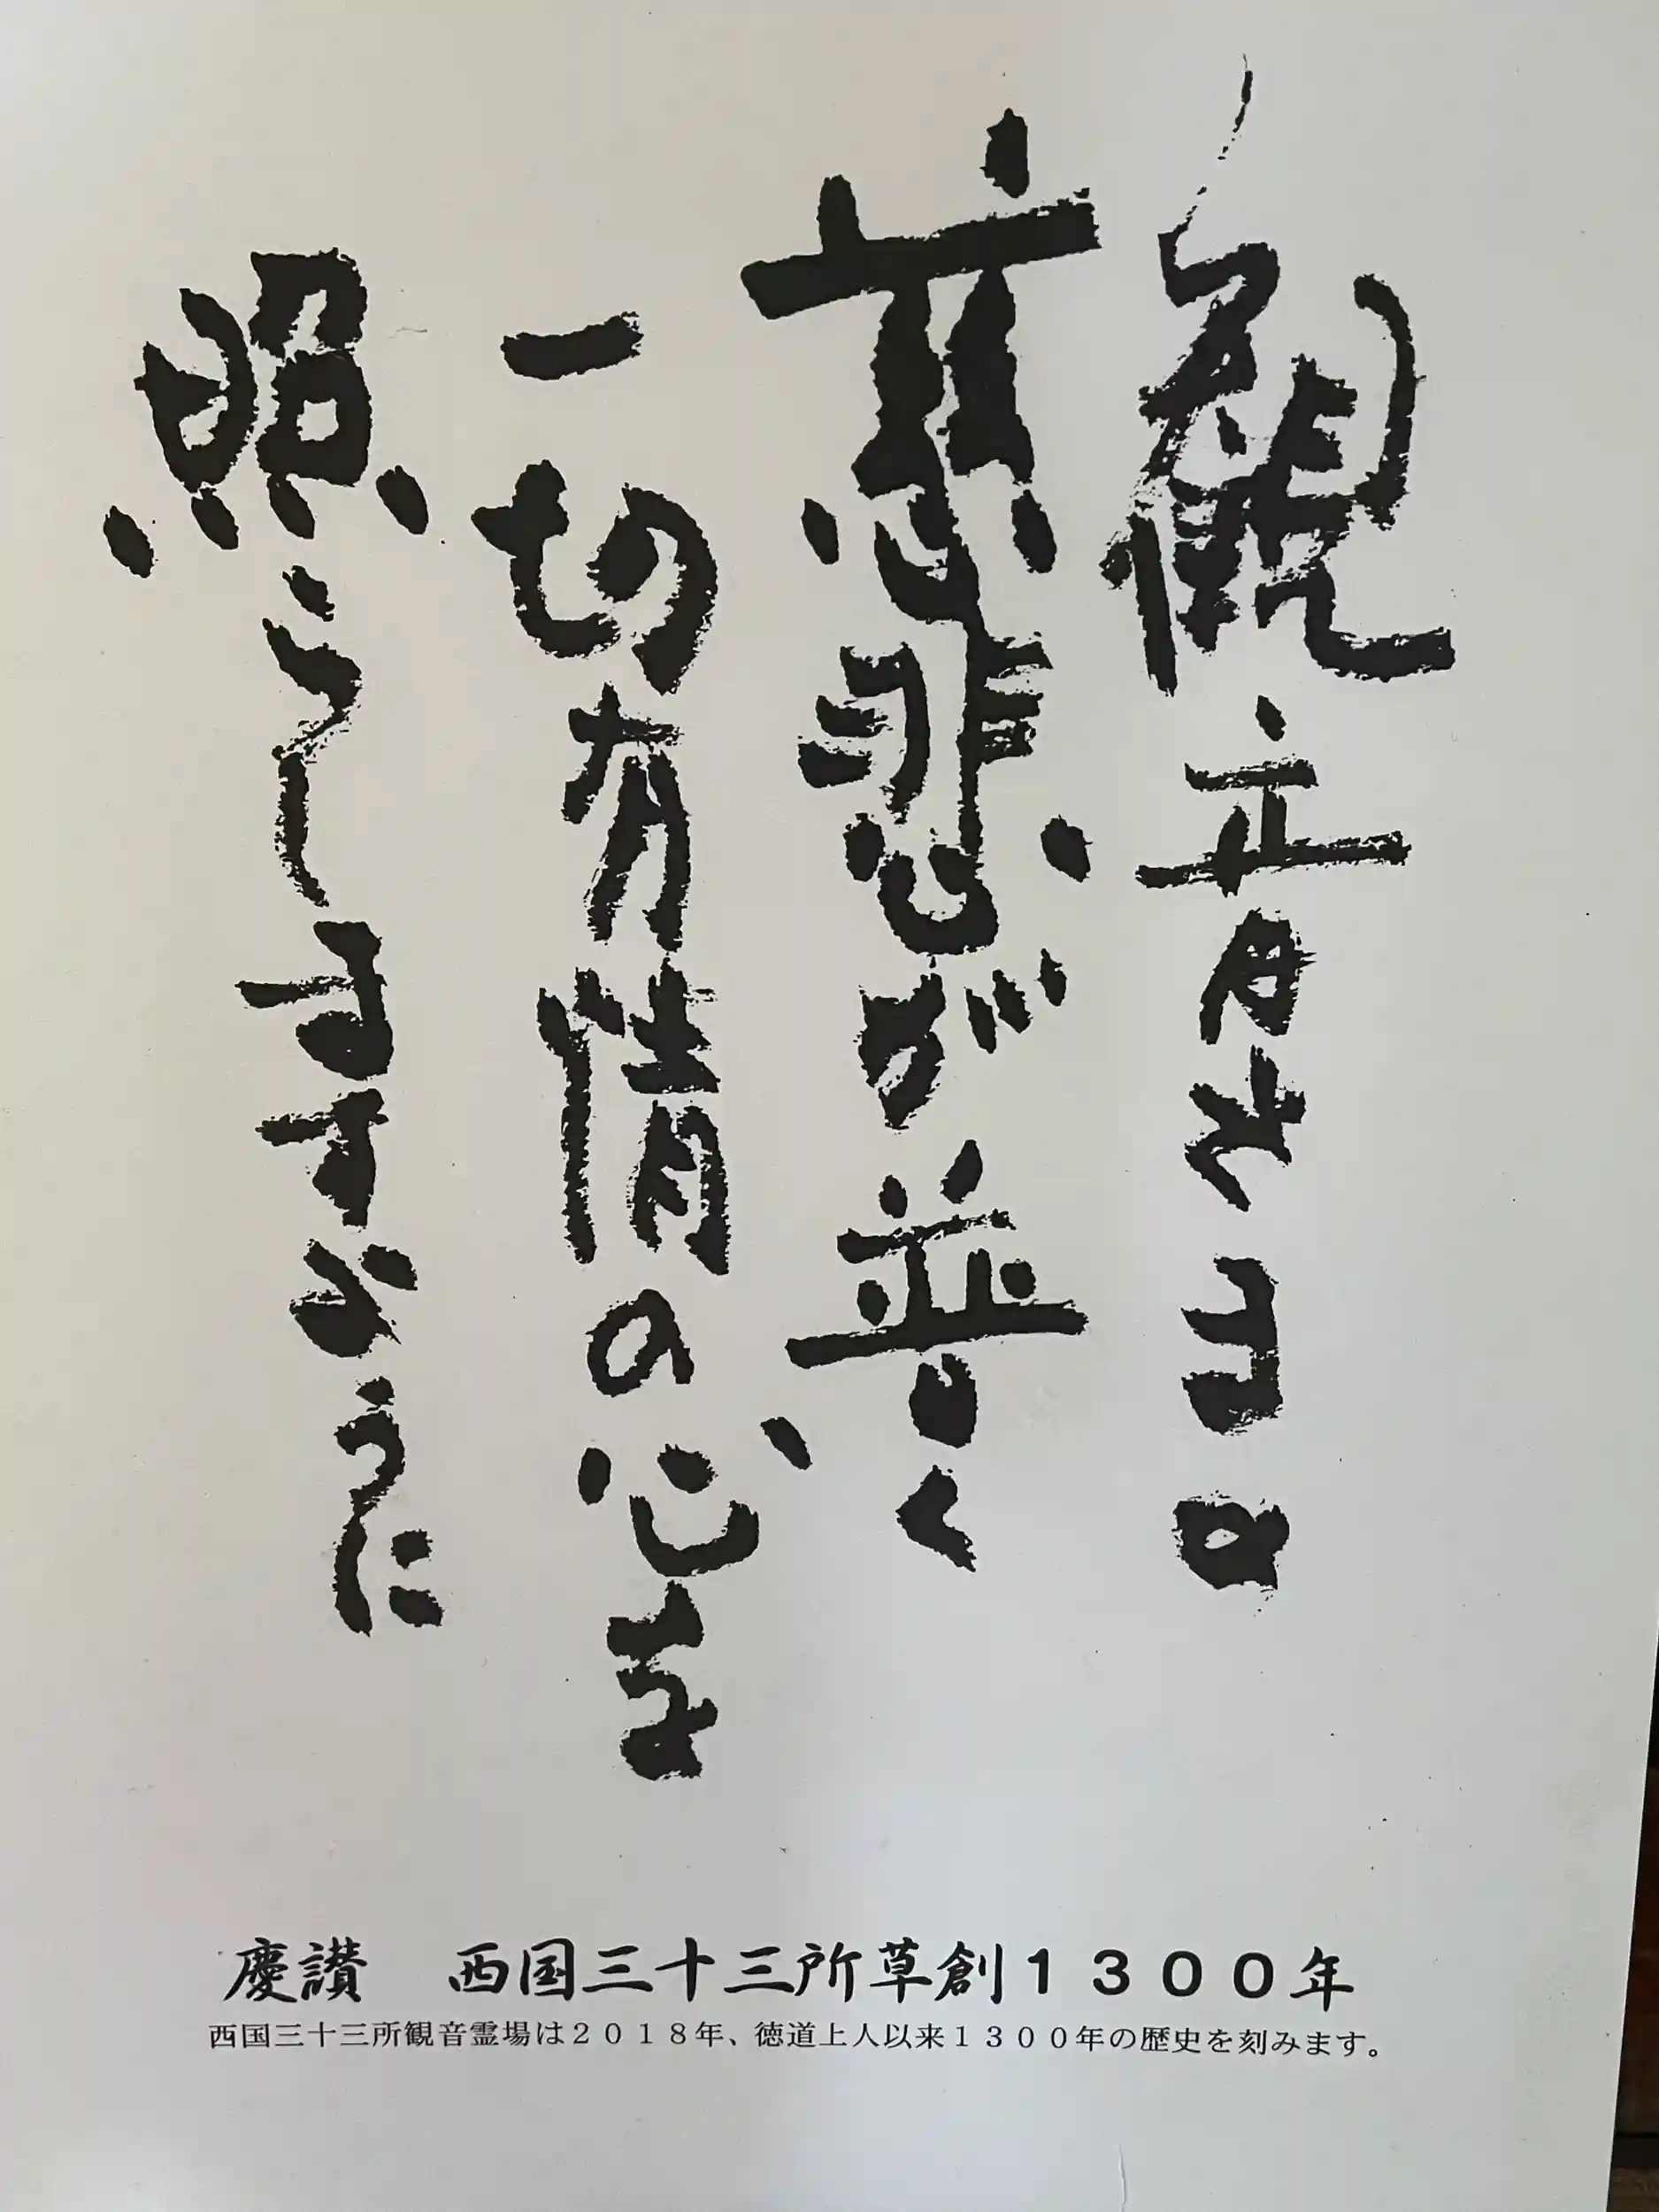 観音さまの
慈悲が普く
一切有情の心を
照らしますように
慶讃　西国三十三所草創1300年
西国三十三所観音霊場は2018年、徳道上人以来1300年の歴史を刻みます。